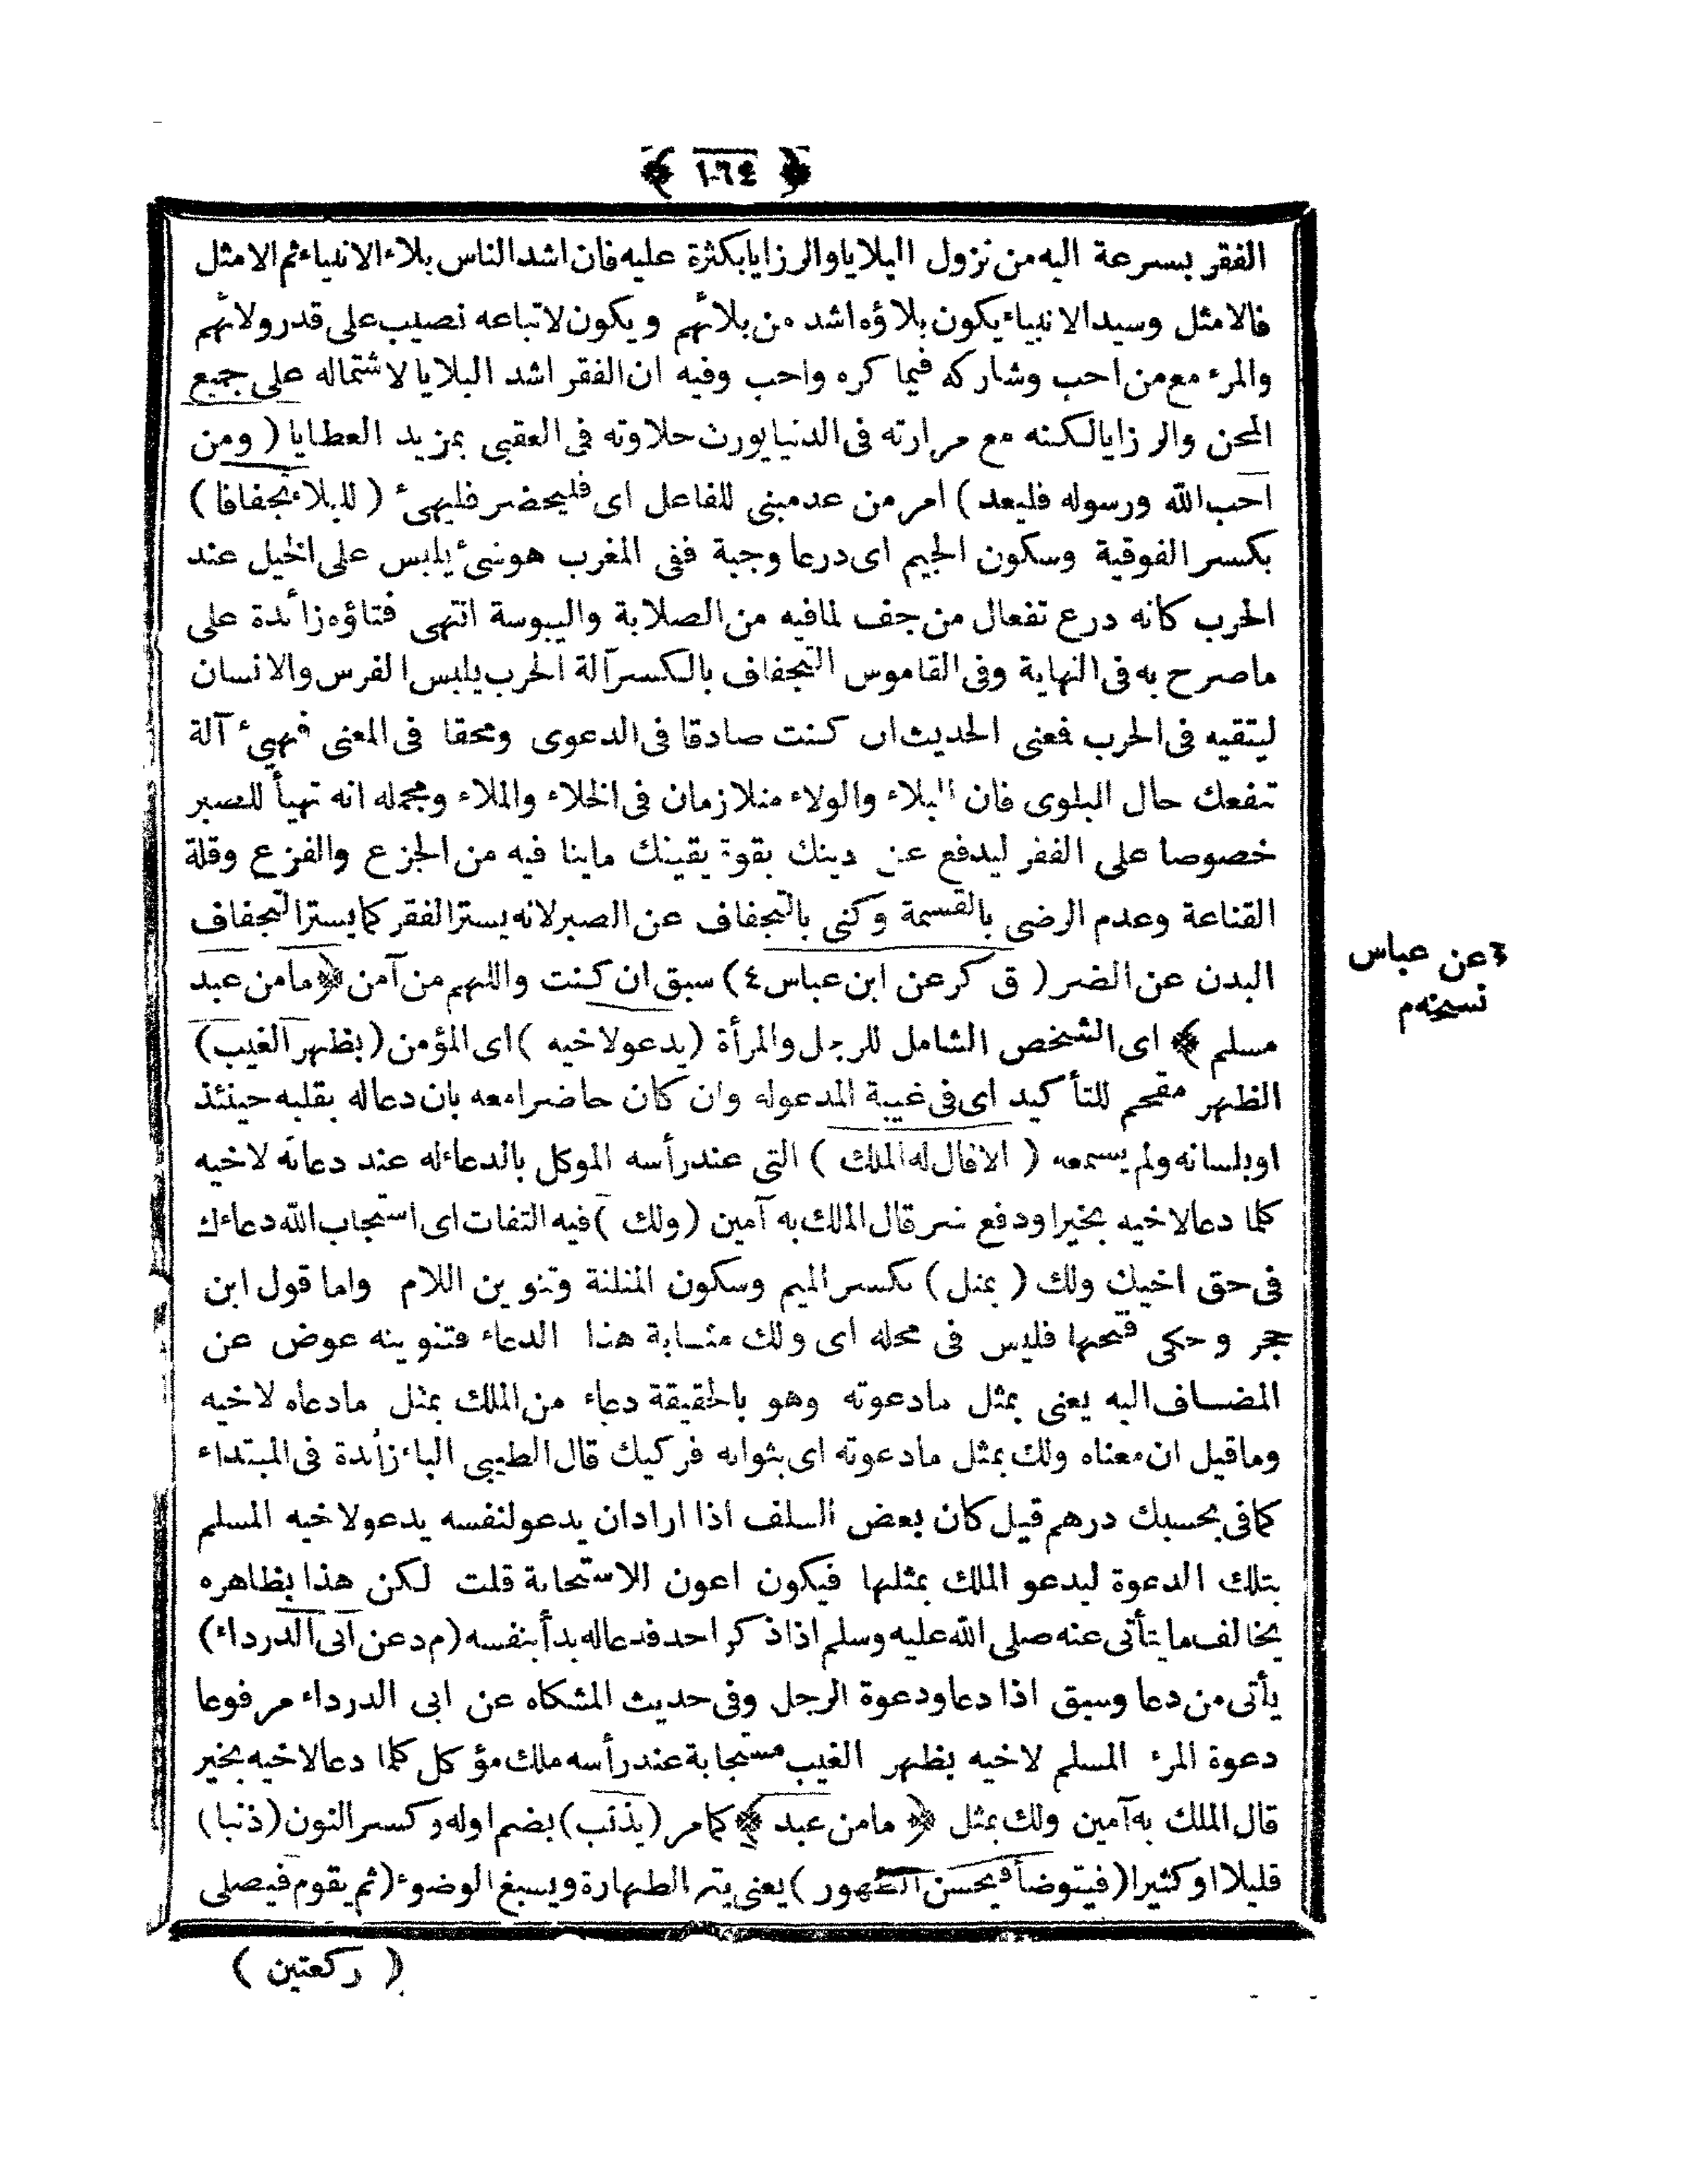 ﴿ ١٦٤ ﴾
الفقر بسرعة اليه من نزول البلايا والرزايا بكثرة عليه فان اشد الناس بلاء الانبياء ثم الامثل
فالامثل وسيد الانبياء يكون بلاؤه اشد من بلائهم ويكون لاتباعه نصيب على قدر ولائهم
والمرء مع من احب وشاركه فيما كره واحب وفيه ان الفقر اشد البلايا لاشتماله على جميع
المحن والرزايا لكنه مع مرارته فى الدنيا يورث حلاوته فى العقبى بمزيد العطايا ( ومن
احب الله ورسوله فليعد ) امر من عد مبنى للفاعل اى فليحضر فليهىء ( للبلاء تجفافا )
بكسر الفوقية وسكون الجيم اى درعا وجبة ففى المغرب هو شىء يلبس على الخيل عند
الحرب كانه درع تفعال من جف لما فيه من الصلابة واليبوسة انتهى فتاؤه زائدة على
ما صرح به فى النهاية وفى القاموس التجفاف بالكسر آلة الحرب يلبس الفرس والانسان
ليتقيه فى الحرب فمعنى الحديث ان كنت صادقا فى الدعوى ومحقا فى المعنى فهيىء آلة
تنفعك حال البلوى فان البلاء والولاء متلازمان فى الخلاء والملاء ومجمله انه تهيأ للصبر
خصوصا على الفقر ليدفع عن دينك بقوة يقينك ما ينا فيه من الجزع والفزع وقلة
القناعة وعدم الرضى بالقسمة وكنى بالتجفاف عن الصبر لانه يستر الفقر كما يستر التجفاف
البدن عن الضر ( ق كر عن ابن عباس ٤ ) سبق ان كنت واللهم من آمن ﴿ ما من عبد
مسلم ﴾ اى الشخص الشامل للرجل والمرأة ( يدعو لاخيه ) اى المؤمن ( بظهر الغيب )
الظهر مقحم للتأكيد اى فى غيبة المدعوله وان كان حاضرا معه بان دعاله بقلبه حينئذ
او بلسانه ولم يسمعه ( الا قال له الملك ) التى عند رأسه الموكل بالدعاء له عند دعائه لاخيه
كلما دعا لاخيه بخير او دفع شر قال الملك به آمين ( ولك ) فيه التفات اى استجاب الله دعاءك
فى حق اخيك ولك ( بمثل ) بكسر الميم وسكون المثلثة وتنوين اللام واما قول ابن
حجر وحكى فتحها فليس فى محله اى ولك مشابهة هذا الدعاء فتنوينه عوض عن
المضاف اليه يعنى بمثل ما دعوته وهو بالحقيقة دعاء من الملك بمثل ما دعاه لاخيه
وما قيل ان معناه ولك بمثل ما دعوته اى بثوابه فركيك قال الطيبى الباء زائدة فى المبتداء
كما فى بحسبك درهم قيل كان بعض السلف اذا اراد ان يدعو لنفسه يدعو لاخيه المسلم
بتلك الدعوة ليدعو الملك بمثلها فيكون اعون للاستجابة قلت لكن هذا بظاهره
يخالف ما يتأتى عنه صلى الله عليه وسلم اذا ذكر احد فدعا له بدأ بنفسه ( م د عن ابى الدرداء )
يأتى من دعا وسبق اذا دعا ودعوة الرجل وفى حديث المشكاه عن ابى الدرداء مرفوعا
دعوة المرء المسلم لاخيه بظهر الغيب مستجابة عند رأسه ملك مؤكل كلما دعا لاخيه بخير
قال الملك به آمين ولك بمثل ﴿ ما من عبد ﴾ كما مر ( يذنب ) بضم اوله وكسر النون ( ذنبا )
قليلا او كثيرا ( فيتوضأ فيحسن الطهور ) يعنى يتم الطهارة ويسبغ الوضوء ( ثم يقوم فيصلى
( ركعتين )
٤ عن عباس
نسخه م